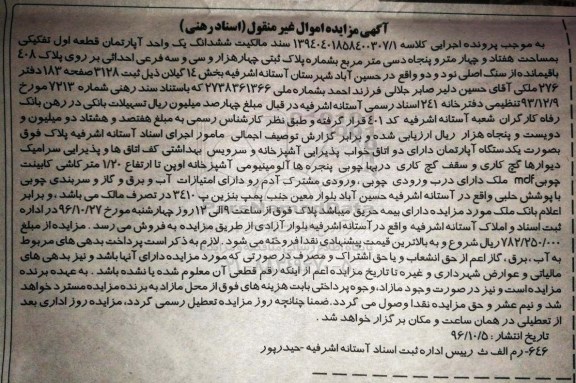 آگهی مزایده اموال غیر منقول (اسناد رهنی)
به موجب پرونده اجرایی کلاسه ۱۳۹۴۰۴۰۱۸۵۸۴۰۰۳۰۷/۱ سند مالکیت ششدانگ یک واحد آپارتمان قطعه اول تفکیکی
بمساحت هفتاد و چهار مترو پنجاه دسی متر مربع بشماره پلاک ثبتی چهارهزار و سی و سه فرعی احداثی بر روی پلاک ۴۰۸
باقیمانده از سنگ اصلی نود و دو واقع در حسین آباد شهرستان آستانه اشرفیه بخش ۱۴ گیلان ذیل ثبت ۳۱۲۸ صفحه ۱۸۳ دفتر
۲۷۶ ملکی آقای حسین دلیر صابر جلالی فرزند احمد بشماره ملی ۲۷۳۸۳۶۱۳۶۶ که باستناد سند رهنی شماره ۷۲۱۳ مورخ
۹۳/۱۲/۹ تنظیمی دفترخانه ۲۴۱ اسناد رسمی آستانه اشرفیه در قبال مبلغ چهارصد میلیون ریال تسهیلات بانکی در رهن بانک
رفاه کارگران شعبه آستانه اشرفیه کد ۴۰۱ قرار گرفته و طبق نظر کارشناس رسمی به مبلغ هفتصد و هشتاد دو میلیون و
دویست و پنجاه هزار ریال ارزیابی شده و برابر گزارش توصیف اجمالی مامور اجرای اسناد آستانه اشرفیه پلاک فوق
بصورت یکدستگاه آپارتمان دارای دو اتاق خواب پذیرایی آشپزخانه و سرویس بهداشتی کف اتاق ها و پذیرایی سرامیک
دیوارها گچ کاری و سقف گچ کاری دربها چوبی پنجره ها آلومینیومی آشپزخانه اوپن تا ارتفاع ۱/۲۰ متر کاشی کابینت
چوبی mdf ملک دارای درب ورودی چوبی، ورودی مشترک آدم رو دارای امتیازات آب و برق و گاز و سربندی چوبی
با پوشش حلبی واقع در آستانه اشرفیه حسین آباد بلوار معین جنب پمپ بنزین پ ۳۴۱۰ در تصرف مالک می باشد، و برابر
اعلام بانک ملک مورد مزایده دارای بیمه حریق میباشد پلاک فوق از ساعت ۹ الی ۱۲ روز چهارشنبه مورخ ۹۶/۱۰/۲۷ در اداره
ثبت اسناد و املاک آستانه اشرفیه واقع در آستانه اشرفیه بلوار آزادی از طریق مزایده به فروش می رسد. مزایده از مبلغ
۷۸۲/۲۵۰/۰۰۰ ریال شروع و به بالاترین قیمت پیشنهادی نقدا فروخته می شود. لازم به ذکر است پرداخت بدهی های مربوط
به آب، برق، گاز اعم از حق انشعاب و یا حق اشتراک و مصرف در صورتی که مورد مزایده دارای آنها باشد و نیز بدهی های
مالیاتی و عوارض شهرداری و غیره تا تاریخ مزایده اعم از اینکه رقم قطعی آن معلوم شده یا نشده باشد. به عهده برنده
مزایده است و نیز در صورت وجود مازاد، وجوه پرداختی بابت هزینه های فوق از محل مازاد به برنده مزایده مسترد خواهد
شد و نیم عشر و حق مزایده نقدا وصول می گردد. ضمنا چنانچه روز مزایده تعطیل رسمی گردد، مزایده روز اداری بعد
از تعطیلی در همان ساعت و مکان برگزار خواهد شد.
تاریخ انتشار: ۹۶/۱۰/۵
۶۴۶-رم الف ث رییس اداره ثبت اسناد آستانه اشرفیه -حیدرپور